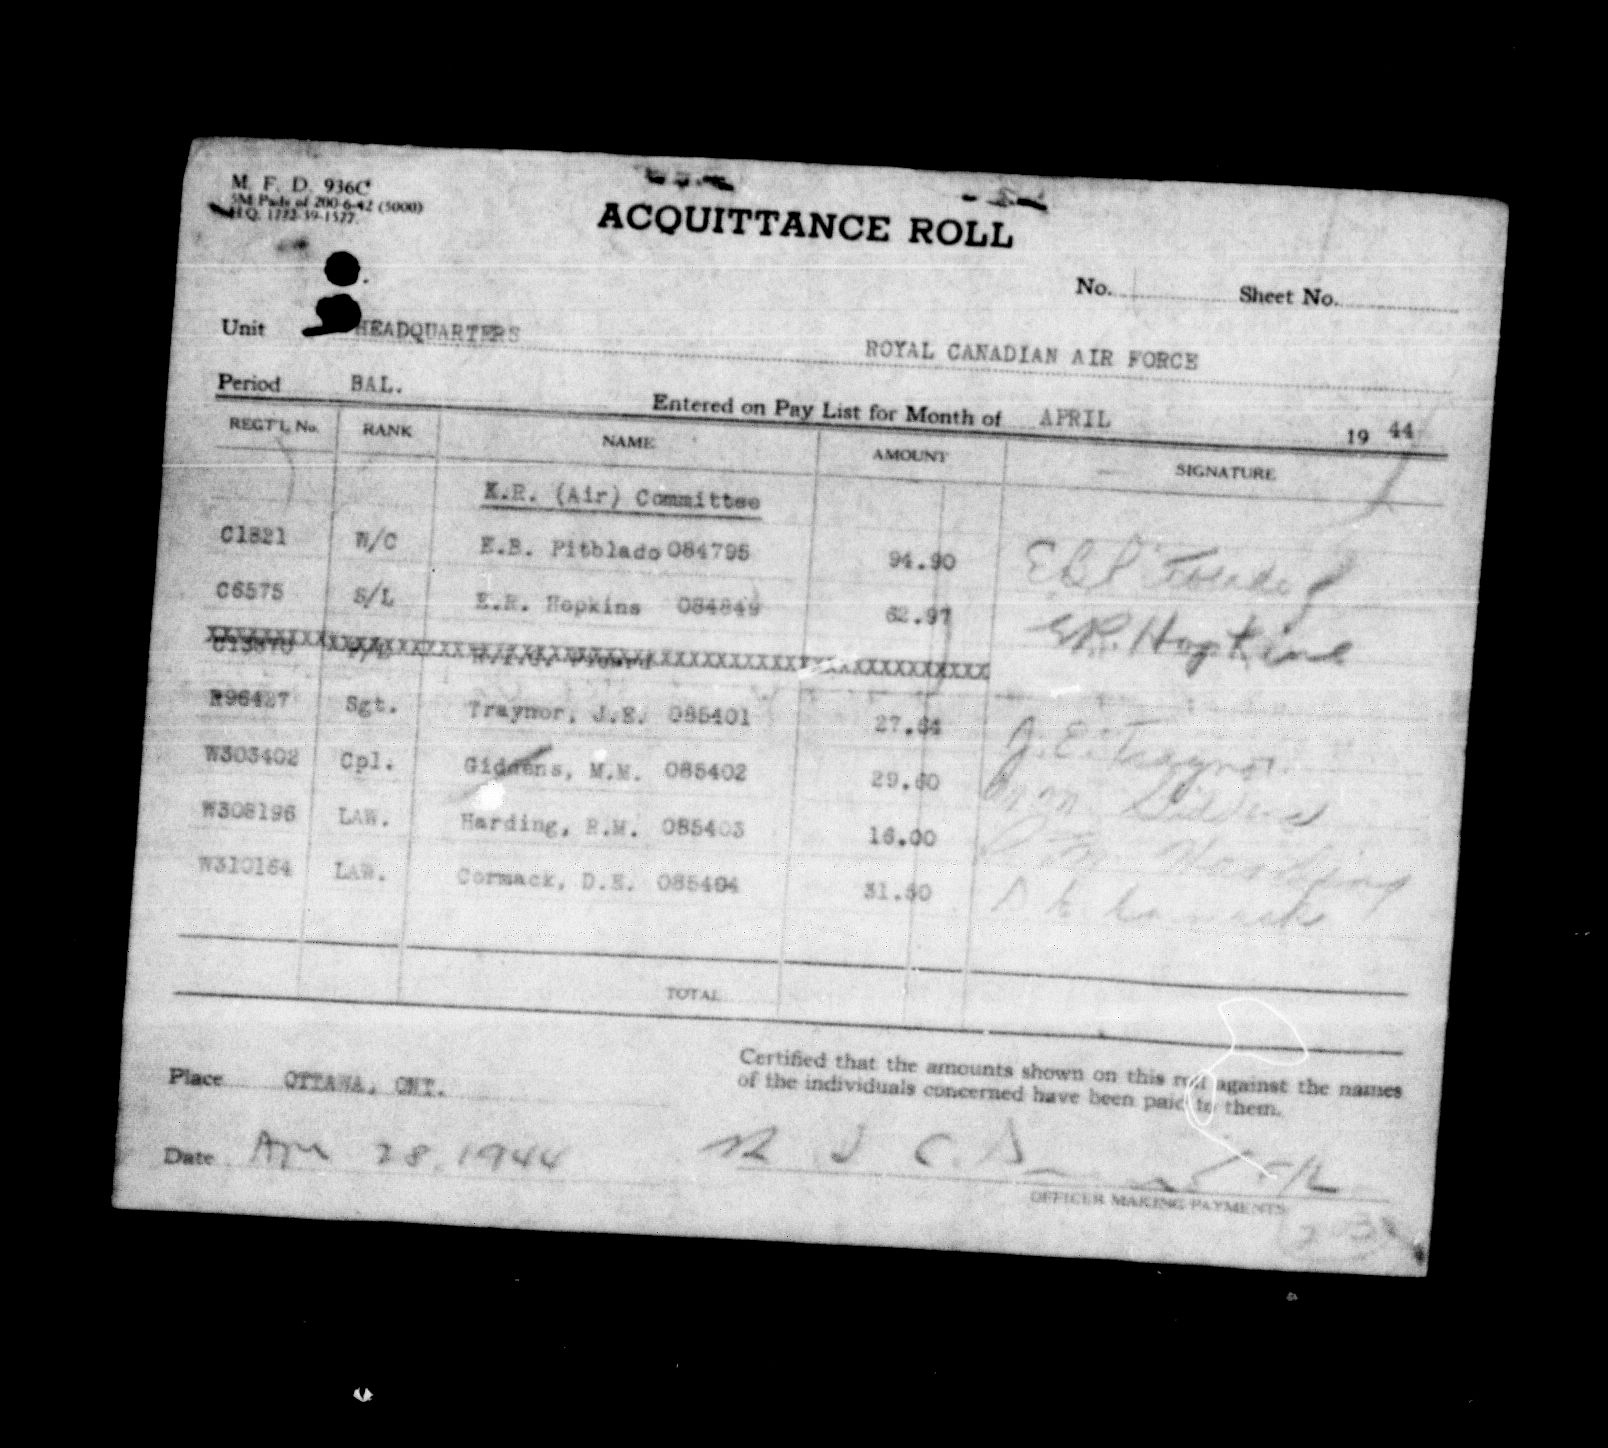 M. F. D. 936C
5M Pads of 200-6-42 (5000)
H.Q. 1772-39-1577
ACQUITTANCE ROLL
No. Sheet No.
Unit HEADQUARTERS ROYAL CANADIAN AIR FORCE
Period BAL. Entered on Pay List for Month of APRIL 19 44
REGT'L No. RANK NAME AMOUNT SIGNATURE
K.R. (Air) Committee
C1821 W/C E.B. Pitblado 084795 94.90 E B Pitblado
C6575 S/L E.R. Hopkins 084849 62.97 E.R. Hopkins
R96427 Sgt. Traynor, J.E. 085401 27.64 J. E. Traynor
W303402 Cpl. Giddens, M.M. 085402 29.60 M M Giddens
W308196 LAW. Harding, R.M. 085403 16.00 R M Harding
W310164 LAW. Cormack, D.E. 085404 31.50 D E Cormack
TOTAL
Certified that the amounts shown on this roll against the names
of the individuals concerned have been paid to them.
Place OTTAWA, ONT.
Date Apr 28, 1944
OFFICER MAKING PAYMENTS